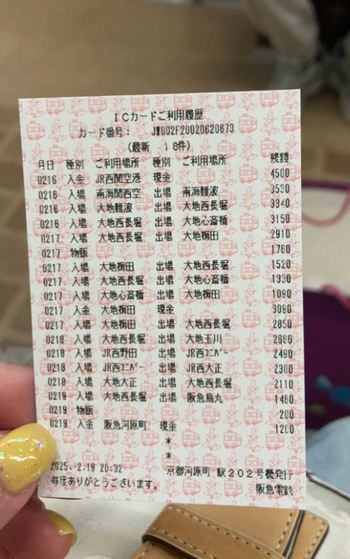 ICカードご利用履歴
カード番号： JW002F20020620673
(最新 18件)
月日 種別 ご利用場所 種別 ご利用場所 残額
0216 入金 JR西関空港 現金 4500
0216 入場 南海関西空 出場 南海難波 3530
0216 入場 大地難波 出場 大地西長堀 3340
0216 入場 大地西長堀 出場 大地心斎橋 3150
0217 入場 大地西長堀 出場 大地梅田 2910
0217 物販 1760
0217 入場 大地梅田 出場 大地西長堀 1520
0217 入場 大地西長堀 出場 大地心斎橋 1330
0217 入場 大地心斎橋 出場 大地梅田 1090
0217 入金 大地梅田 現金 3090
0217 入場 大地梅田 出場 大地西長堀 2850
0218 入場 大地西長堀 出場 大地玉川 2660
0218 入場 JR西野田 出場 JR西ﾕﾆﾊﾞｰ 2490
0218 入場 JR西ﾕﾆﾊﾞｰ 出場 JR西大正 2300
0218 入場 大地大正 出場 大地西長堀 2110
0219 入場 大地西長堀 出場 阪急烏丸 1460
0219 物販 200
0219 入金 阪急河原町 現金 1200
*
*
2025.-2.19 20:32 京都河原町 駅202号機発行
毎度ありがとうございます。 阪急電鉄